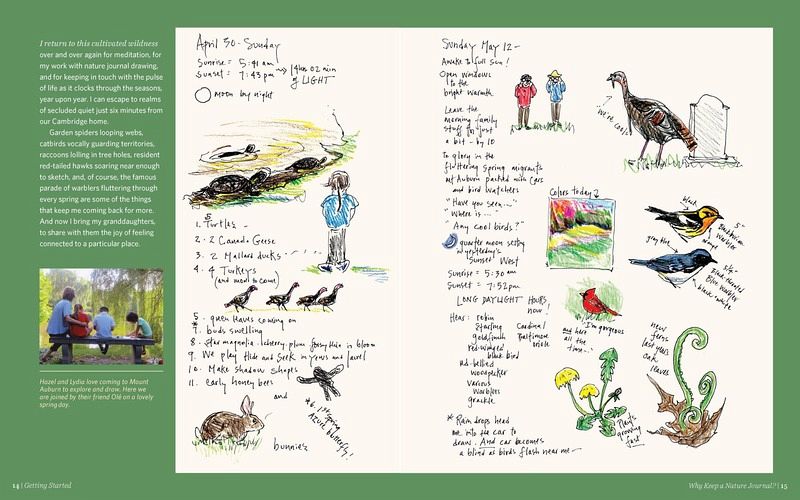 I return to this cultivated wildness
over and over again for meditation, for
my work with nature journal drawing,
and for keeping in touch with the pulse
of life as it clocks through the seasons,
year upon year. I can escape to realms
of secluded quiet just six minutes from
our Cambridge home.
Garden spiders looping webs,
catbirds vocally guarding territories,
raccoons lolling in tree holes, resident
red-tailed hawks soaring near enough
to sketch, and, of course, the famous
parade of warblers fluttering through
every spring are some of the things
that keep me coming back for more.
And now I bring my granddaughters,
to share with them the joy of feeling
connected to a particular place.
Hazel and Lydia love coming to Mount
Auburn to explore and draw. Here we
are joined by their friend Olé on a lovely
spring day.
14 | Getting Started
April 30 - Sunday
Sunrise = 5:41 am
Sunset = 7:43 pm
14 hrs 02 min
of LIGHT
moon by night
1. 5 Turtles -
2. 2 Canada Geese
3. 2 Mallard ducks
4. 4 Turkeys
(and more to come)
5. green leaves coming on
7. buds swelling
8. star magnolia - cherry, plum, forsythia in bloom
9. We play Hide and Seek in yews and laurel
10. Make shadow shapes
11. early honey bees
and
#6 1st spring
Azure butterfly!
bunnies
Sunday May 12 -
Awake to full sun!
Open windows
to the
bright warmth
Leave the
morning family
stuff for just
a bit - by 10
To glory in the
fluttering spring migrants
Mt Auburn packed with cars
and bird watchers
"Have you seen..."
"Where is..."
"Any cool birds?"
quarter moon setting
in yesterday's
Sunset West
Sunrise = 5:30 am
Sunset = 7:52 pm
LONG DAYLIGHT HOURS,
now!
Hear: robin
Starling Cardinal
goldfinch Baltimore
oriole
red-winged
black bird
red-bellied
woodpecker
various
warblers
grackle
* Rain drops head
me into the car to
draw. And car becomes
a blind as birds flash near me -
"We're cool"
Colors today
black
5"
Blackburnian
Warbler
orange
gray blue
5 1/4"
Black-throated
Blue Warbler
black white
"I'm gorgeous
and here
all the
time..."
new
ferns
last year's
oak
leaves
Plants
growing
fast
Why Keep a Nature Journal? | 15